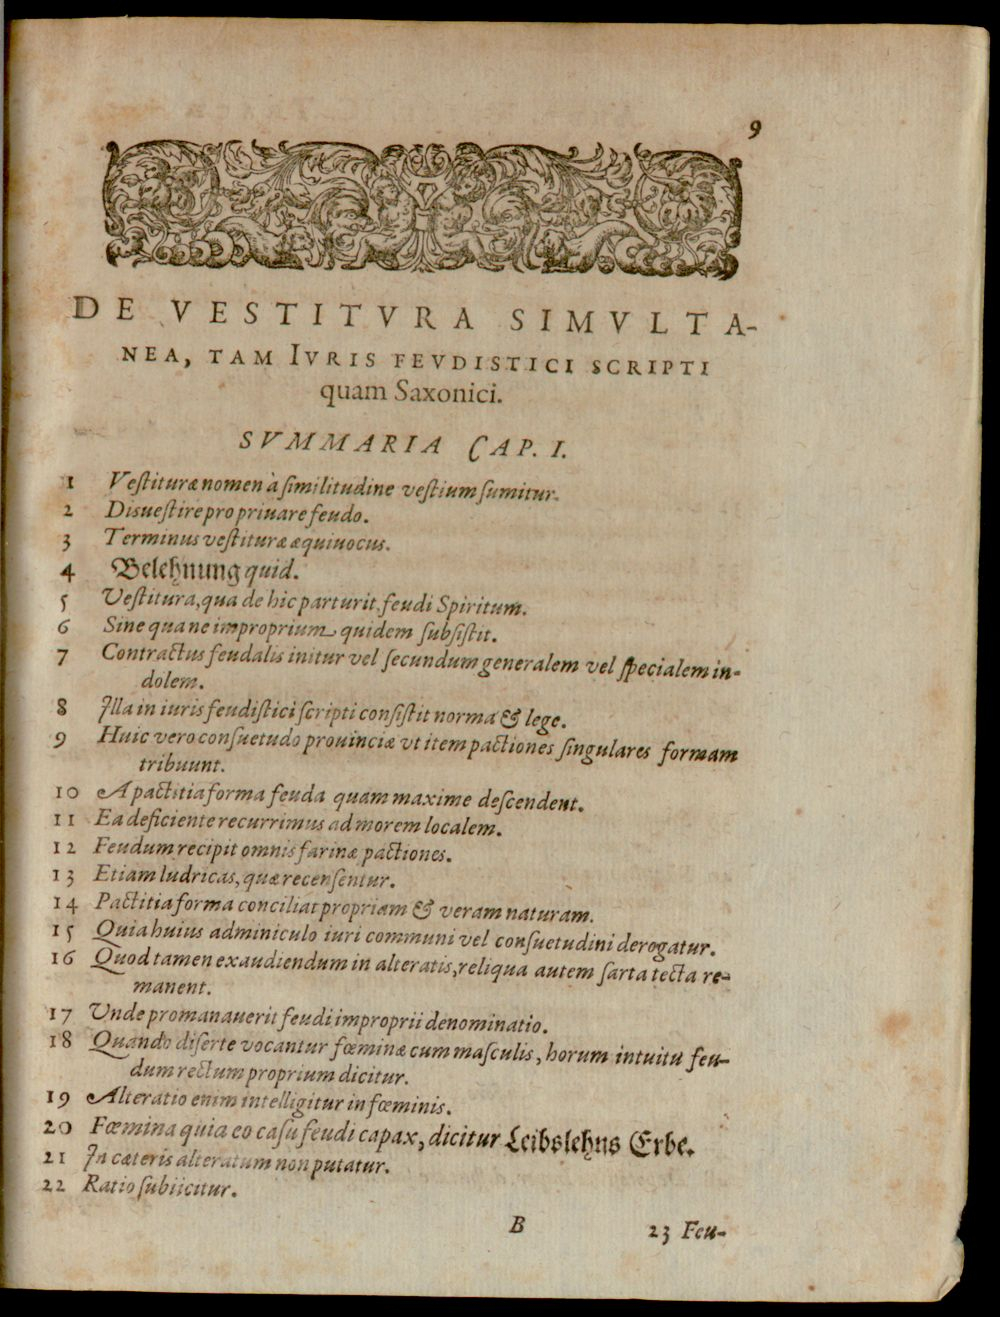 9
DE VESTITVRA SIMVLTA-
NEA, TAM IVRIS FEVDISTICI SCRIPTI
quam Saxonici.
SVMMARIA CAP. I.
1 Vestituræ nomen à similitudine vestium sumitur.
2 Disuestire pro priuare feudo.
3 Terminus vestituræ æquiuocus.
4 Belehnung quid.
5 Vestitura, qua de hic parturit feudi Spiritum.
6 Sine qua ne improprium quidem subsistit.
7 Contractus feudalis initur vel secundum generalem vel specialem in-
dolem.
8 Illa in iuris feudistici scripti consistit norma & lege.
9 Huic vero consuetudo prouinciæ vt item pactiones singulares formam
tribuunt.
10 A pactitia forma feuda quam maxime descendent.
11 Ea deficiente recurrimus ad morem localem.
12 Feudum recipit omnis farinæ pactiones.
13 Etiam ludricas, quæ recensentur.
14 Pactitia forma conciliat propriam & veram naturam.
15 Quia huius adminiculo iuri communi vel consuetudini derogatur.
16 Quod tamen exaudiendum in alteratis, reliqua autem sarta tecta re-
manent.
17 Vnde promanauerit feudi improprii denominatio.
18 Quando diserte vocantur fœminæ cum masculis, horum intuitu feu-
dum rectum proprium dicitur.
19 Alteratio enim intelligitur in fœminis.
20 Fœmina quia eo casu feudi capax, dicitur Leibslehns Erbe.
21 In cæteris alteratum non putatur.
22 Ratio subiicitur.
B 23 Feu-